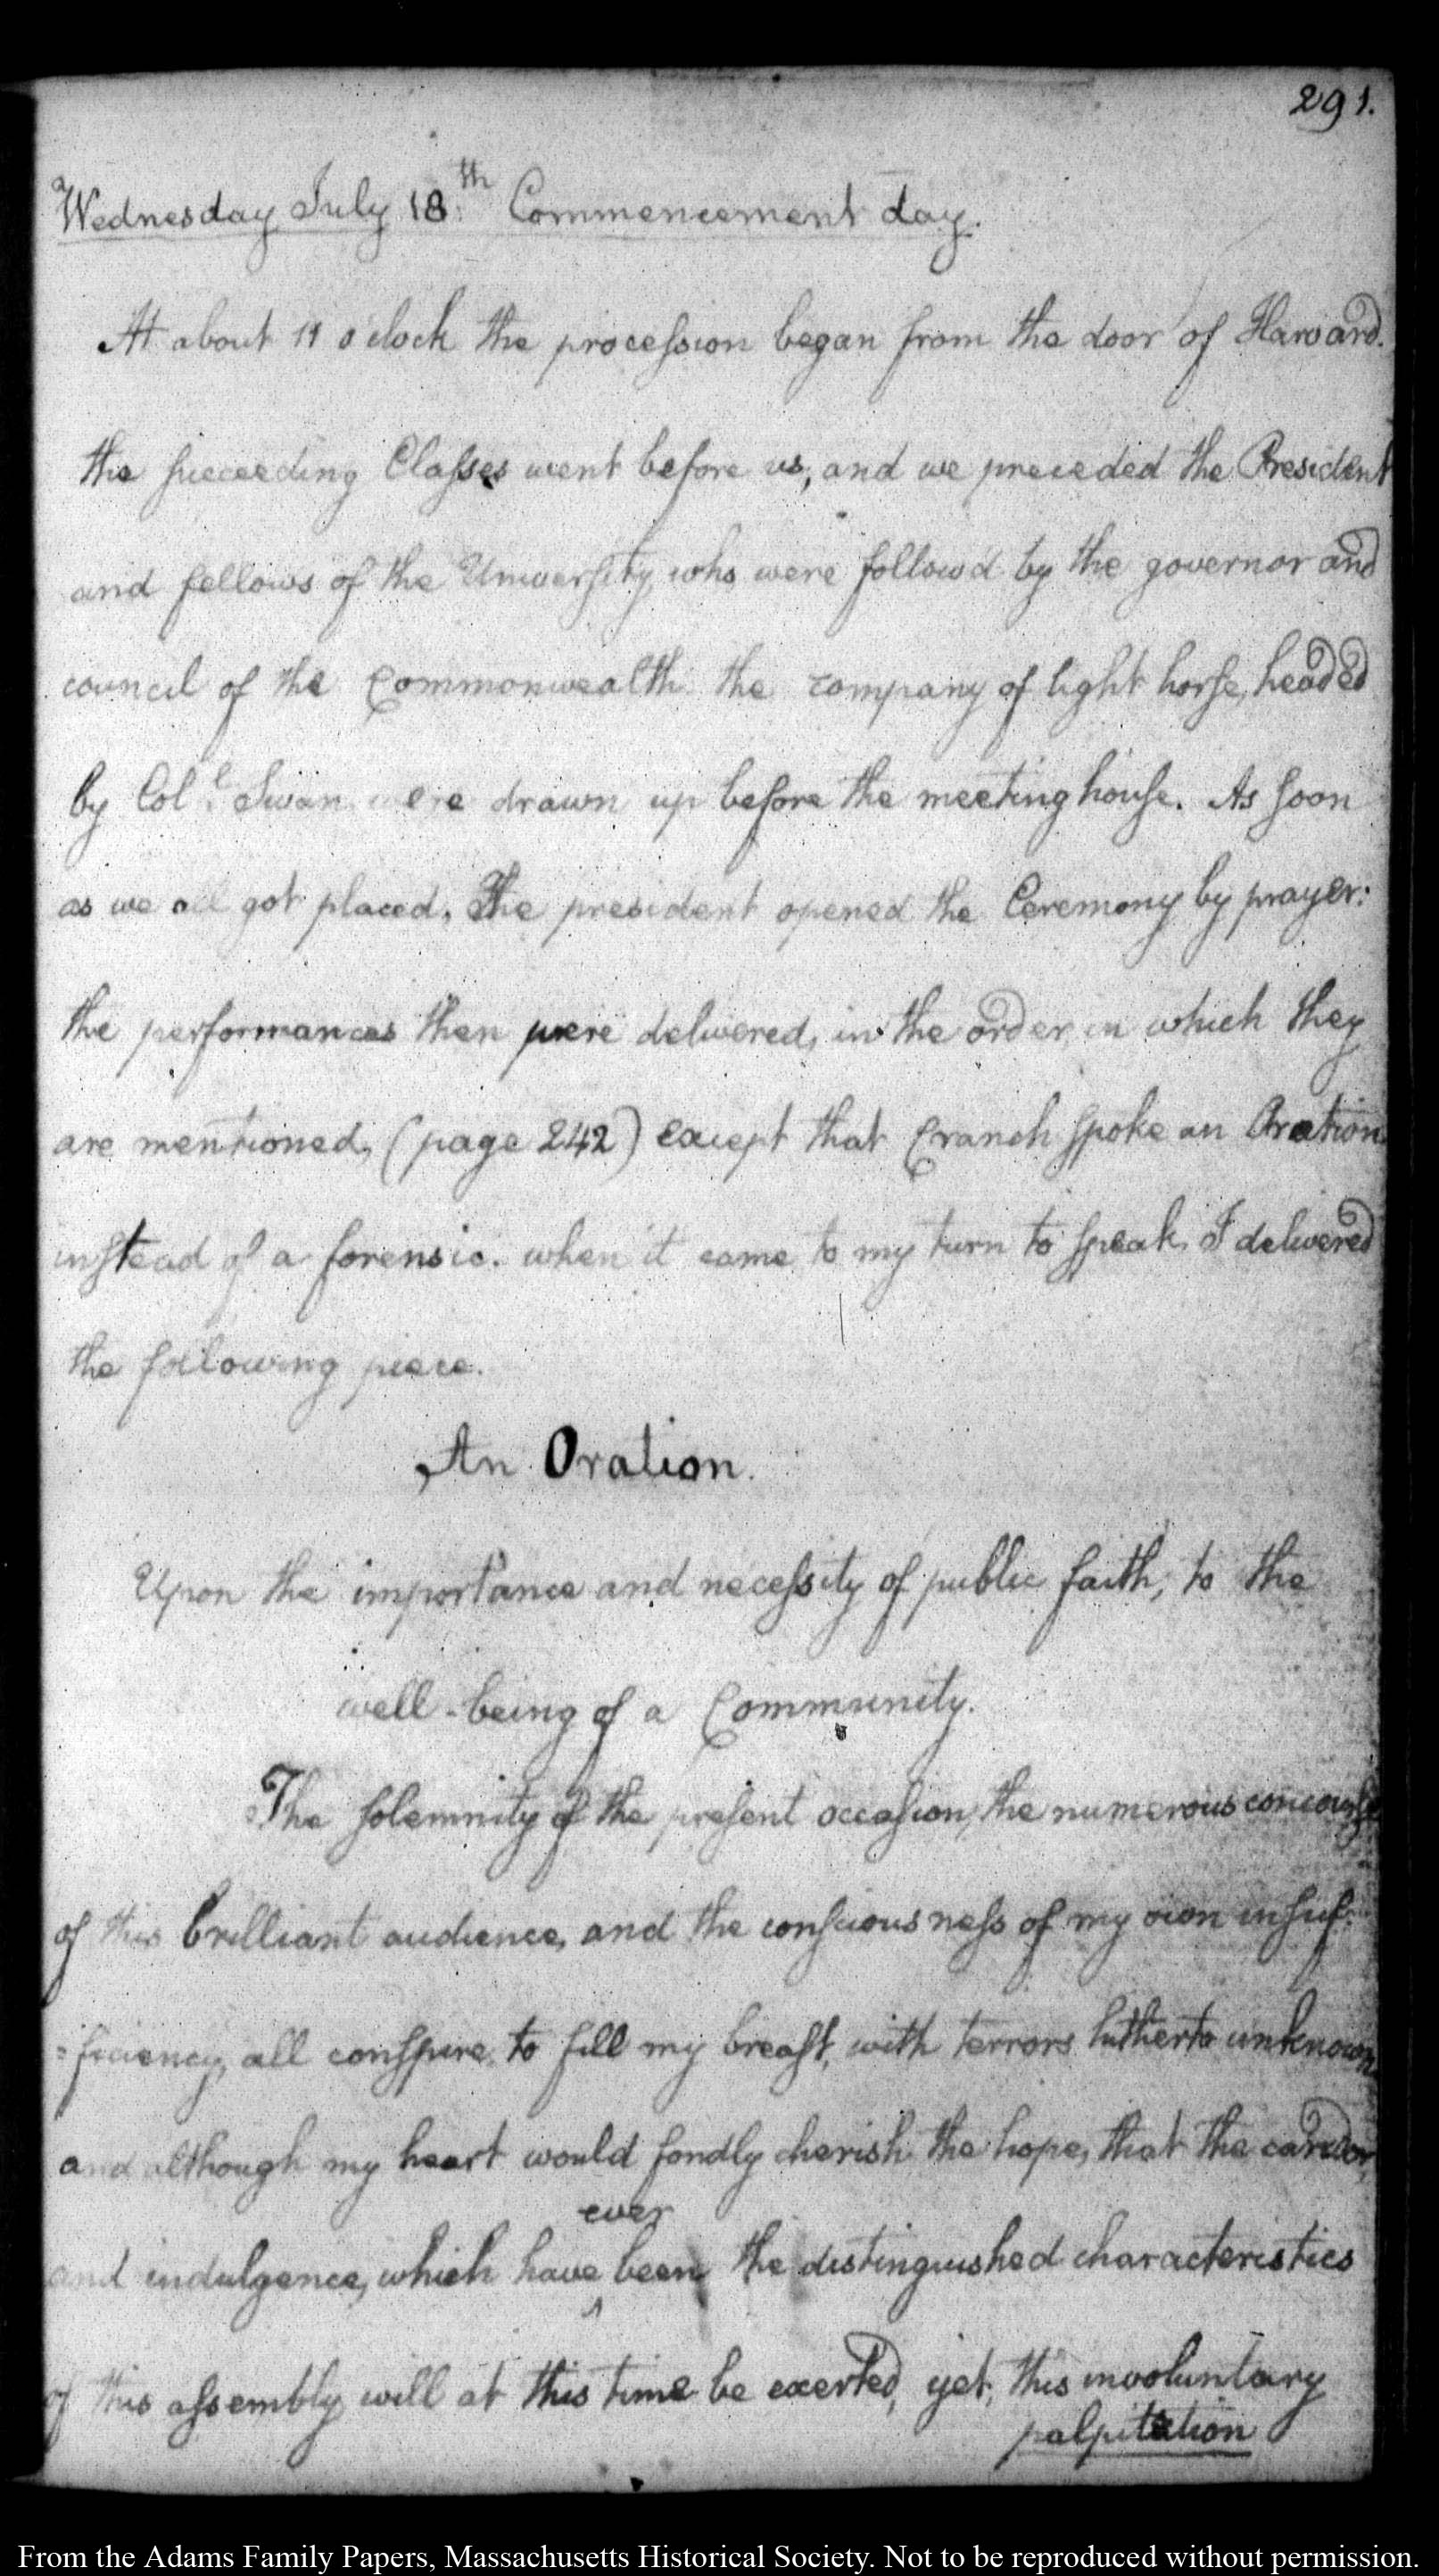 291.
Wednesday July 18:th Commencement day.
At about 11 o'clock the procession began from the door of Harvard.
the succeeding Classes went before us, and we preceded the President
and fellows of the University, who were follow'd by the governor and
council of the Commonwealth. the company of light horse, headed
by Col:l Swan were drawn up before the meeting house. As soon
as we all got placed, The president opened the Ceremony by prayer:
the performances then were delivered, in the order in which they
are mentioned, (page 242) except that Cranch spoke an Oration
instead of a forensic. when it came to my turn to speak, I delivered
the following piece.
An Oration.
Upon the importance and necessity of public faith, to the
well-being of a Community.
The solemnity of the present occasion, the numerous concourse
of this brilliant audience, and the consciousness of my own insuf-
=ficiency, all conspire, to fill my breast, with terrors hitherto unknown
and although my heart would fondly cherish the hope, that the candor,
ever
and indulgence, which have ^ been the distinguished characteristics
of this assembly will at this time be exerted, yet, this involuntary
palpitation
From the Adams Family Papers, Massachusetts Historical Society. Not to be reproduced without permission.